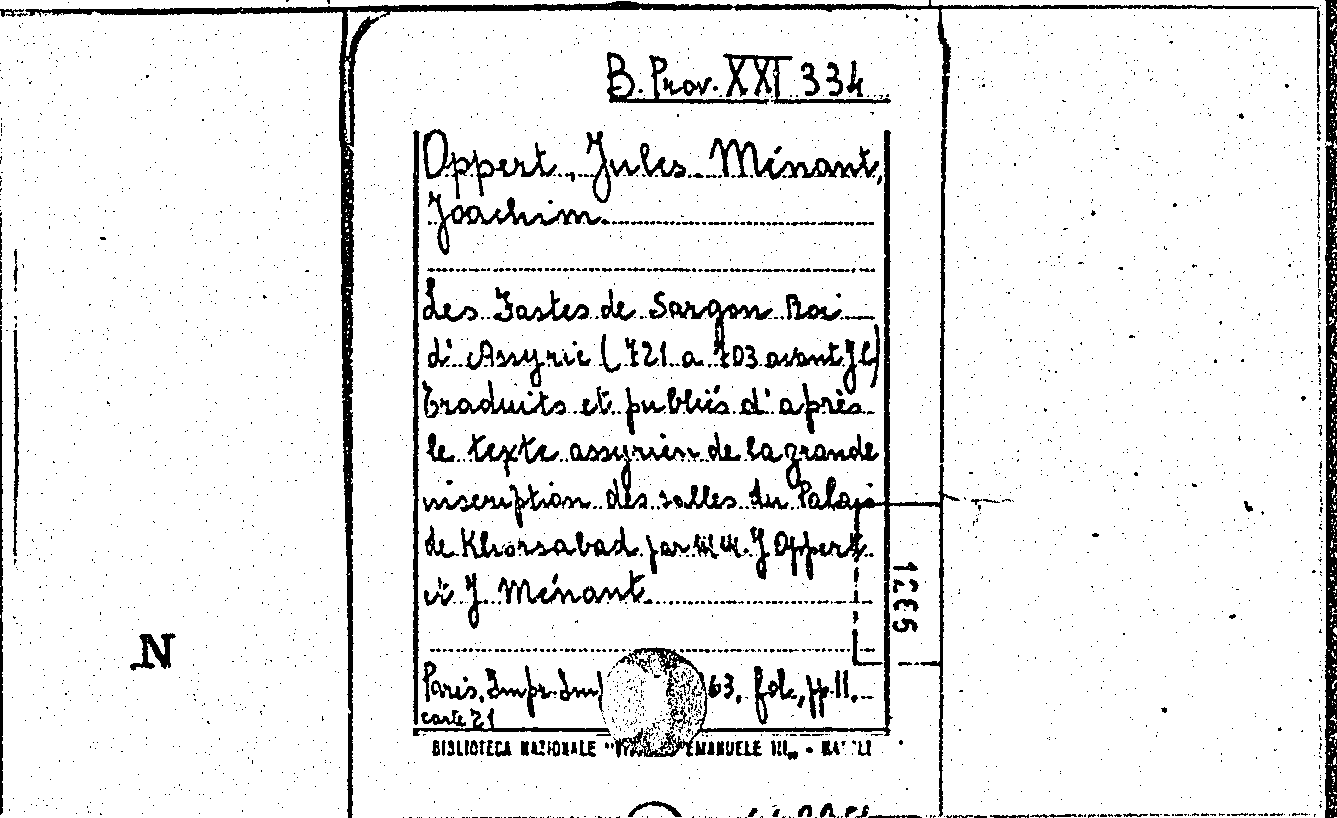 B. Prov. XXI 334
Oppert, Jules. Ménant,
Joachim.
Les Fastes de Sargon Roi
d'Assyrie (721 a 703 avant J C)
Traduits et publiés d'après
le texte assyrien de la grande
inscription des salles du Palais
de Khorsabad par MM. J Oppert
et J. Ménant
1265
N
Paris, Impr. Im 63, fol., pp. 11,
carte 21
BIBLIOTECA NAZIONALE " EMANUELE III„ - NAPOLI